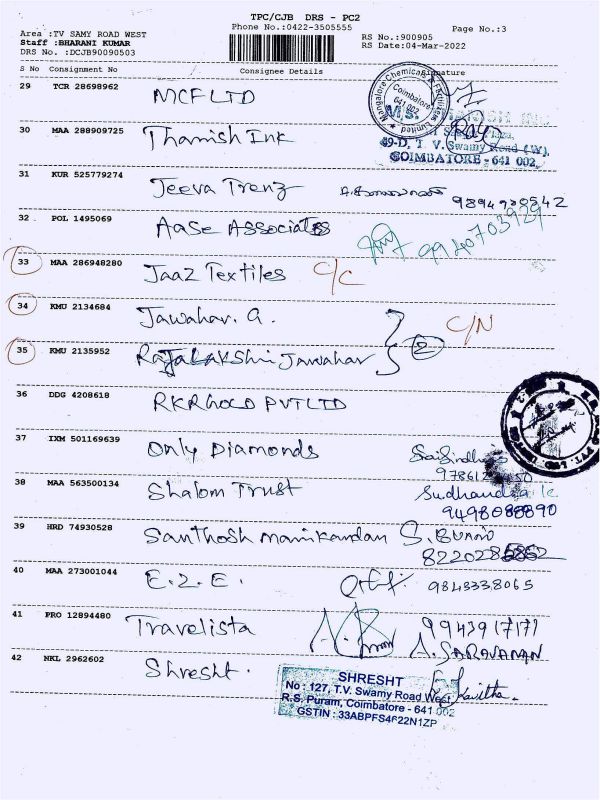 TPC/CJB DRS - PC2
Phone No.:0422-3505555
Page No.:3
Area :TV SAMY ROAD WEST
Staff :BHARANI KUMAR
DRS No. :DCJB90090503
RS No.:900905
RS Date:04-Mar-2022
S No Consignment No Consignee Details Signature
29 TCR 28698962 MCF LTD
Mangalore Chemicals & Fertilizers Limited
Coimbatore
641 002
30 MAA 288909725 Thanish Ink
M/S.
49-D, T. V. Swamy Road (W),
COIMBATORE - 641 002.
31 KUR 525779274 Jeeva Trenz
32 POL 1495069 Aase Associates 9940703929
33 MAA 286948280 Jaaz Textiles C/C
34 KMU 2134684 Jawahar. G.
35 KMU 2135952 Rajalakshmi Jawahar 2 C/N
36 DDG 4208618 RKR GOLD PVT LTD
37 IXM 501169639 Only Diamonds
38 MAA 563500134 Shalom Trust
39 HRD 74930528 Santhosh manikandan
40 MAA 273001044 E.2.E. 9843338065
41 PRO 12894480 Travelista 9943917171
A. SARAVANAN
42 NKL 2962602 Shresht. Kavitha
SHRESHT
No : 127, T.V. Swamy Road West,
R.S. Puram, Coimbatore - 641 002
GSTIN : 33ABPFS4622N1ZP